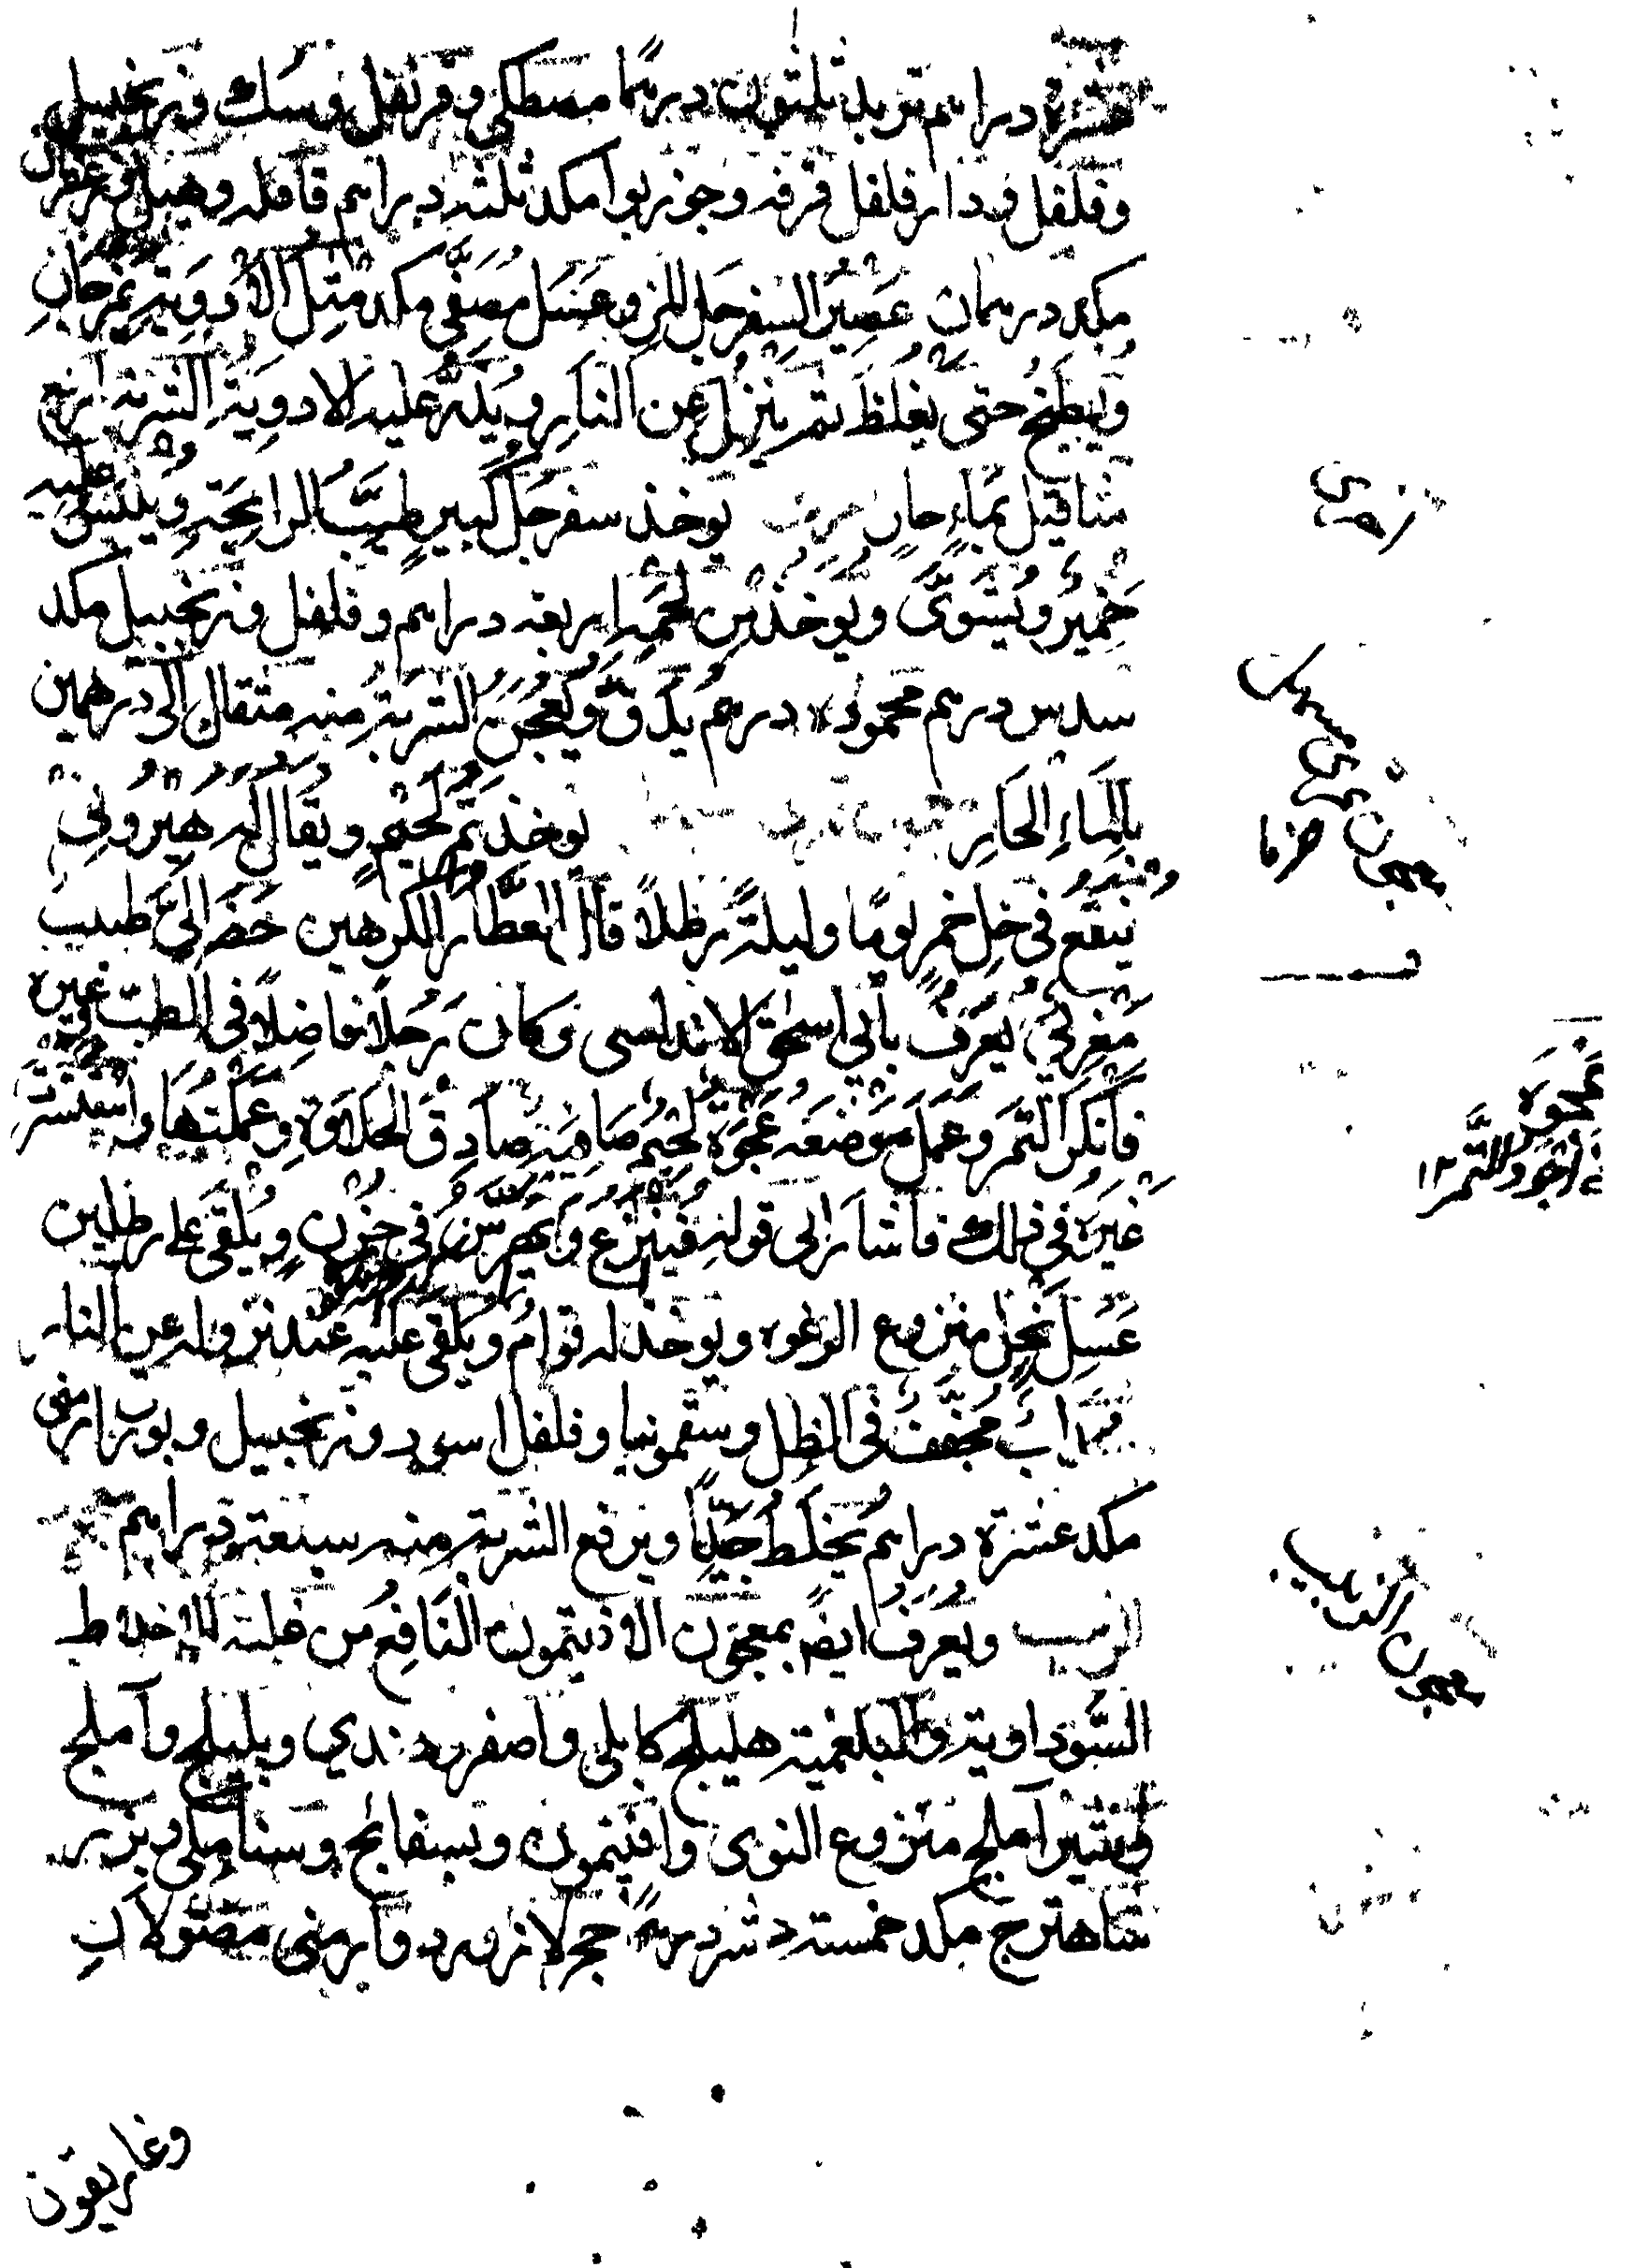 عشرة دراهم تربد ثلثون درهمًا مصطكى وقرنفل وسك وزنجبيل
وفلفل ودار فلفل قرفه وجوز بوا مكد ثلثه دراهم قاقله وهيل وزعفران
مكد درهمان عَصِيرُ السفرجل المز وعَسَل مُصَفَّى مكد مثِل الأدوِيَةِ يمزجانِ
ويُطبَخُ حتى يغلظَ ثم يُنزلُ عن النارِ ويُذَرُّ عليه الادوِيَةُ الشربة اربع
مثاقيل بمَاءٍ حارٍ يوخذ سفرجل كبير طيبُ الرايحَةِ ويُلبَسُ عليه
خميرٌ ويُشوَىَّ ويُوخَذُ من لحمِه اربعه دراهم وفلفل وزنجبيل مكد
سدس درهم محموده درهم يُدَقُّ ويُعجَنُ الشربَةُ منه مثقال الى درهمين
بالمَاءِ الحَارِ يوخذ تمرٌ لَحِيمٌ ويقَالُ لَه هَيرُونِي
ينقع في خل خمرٍ يومًا وليلةً رطلاً قال العطَّار الكوهين حَضَر اليَّ طبيب
مَغرِبيٌ يُعرَفُ بأبي اسحٰق الاندلسى وكان رَجُلاً فاضِلاً في الطب وغيره
فأنكَر التَمرَ وعَمِلَ مَوضعَه عَجْوَةً لَحيمَةً صَافِيَه صَادِقَ الحَلاوَةِ وعَمِلتُها واستفسرت
غيرَهُ في ذلك فأشارَ الى قولهِ فيُنزع ويُهرَسُ في جُرْنٍ ويُلقَى على رطلين
عَسِل نحل منزوع الرغوه ويوخذ له قوامٌ ويلقى عليه عند نزوله عن النار
سذابٌ مُجَفَّفٌ في الظل وسقمونيا وفلفل اسود وزنجبيل وبورق ارمنى
مكد عشرة دراهم يُخلَط جَيّدًا ويرفع الشربة منه سبعة دراهم
الزبيب ويُعرَفُ ايضًا بمعجون الافيتمون النَافِع من غلبة الاخلاط
السَّوداوية والبلغمية هليلج كابلى واصفر وهندي وبليلج وآملج
وشير آملج منزوع النوى وافيتمون وبسفايج وسنا مكى وبزر
شاهترج مكد خمسة عشر درهمًا حجر لازورد وأرمنى مغسولان
معجون هرما
معجون الزبيب
عَجْوَه
اجود التَّمر ١٢
وغاريقون